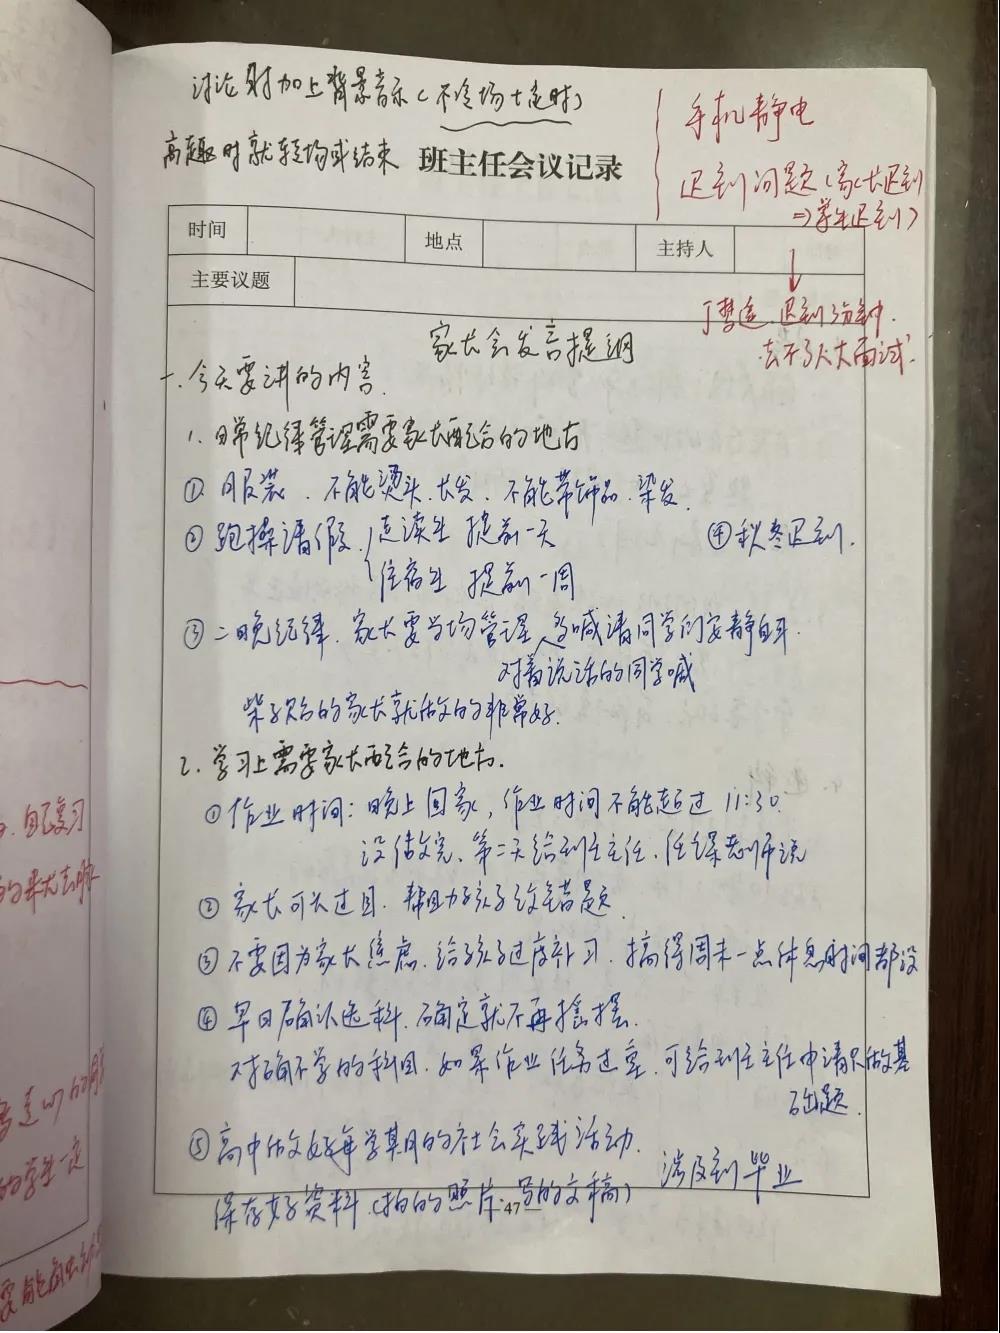 讨论时加上背景音乐（不冷场+定时）
高趣时就转场或结束
班主任会议记录
手机静电
迟到问题（家长迟到
⇒学生迟到）
时间 地点 主持人
主要议题
迟到3分钟.
去不了人大面试.
家长会发言提纲
一.今天要讲的内容.
1.日常纪律管理需要家长配合的地方
①服装、不能烫头.长发、不能带饰品.染发.
②跑操请假.走读生 提前一天
住宿生 提前一周
④秋冬迟到.
③二晚纪律.家长要当场管理.喊请同学们安静自习.
对着说话的同学喊
的家长就做的非常好.
2.学习上需要家长配合的地方.
①作业时间：晚上回家，作业时间不能超过11:30.
没做完、第二天给班主任、任课老师说
②家长可以过目.帮助孩子改错题.
③不要因为家长焦虑.给孩子过度补习.搞得周末一点休息时间都没
④早日确认选科.确定就不再摇摆.
对确不学的科目.如果作业任务过重.可给班主任申请只做基
础题.
⑤高中做好每学期的社会实践活动.
涉及到毕业
保存好资料（拍的照片.写的文稿）
47
自己复习
的来龙去脉
的学生一定